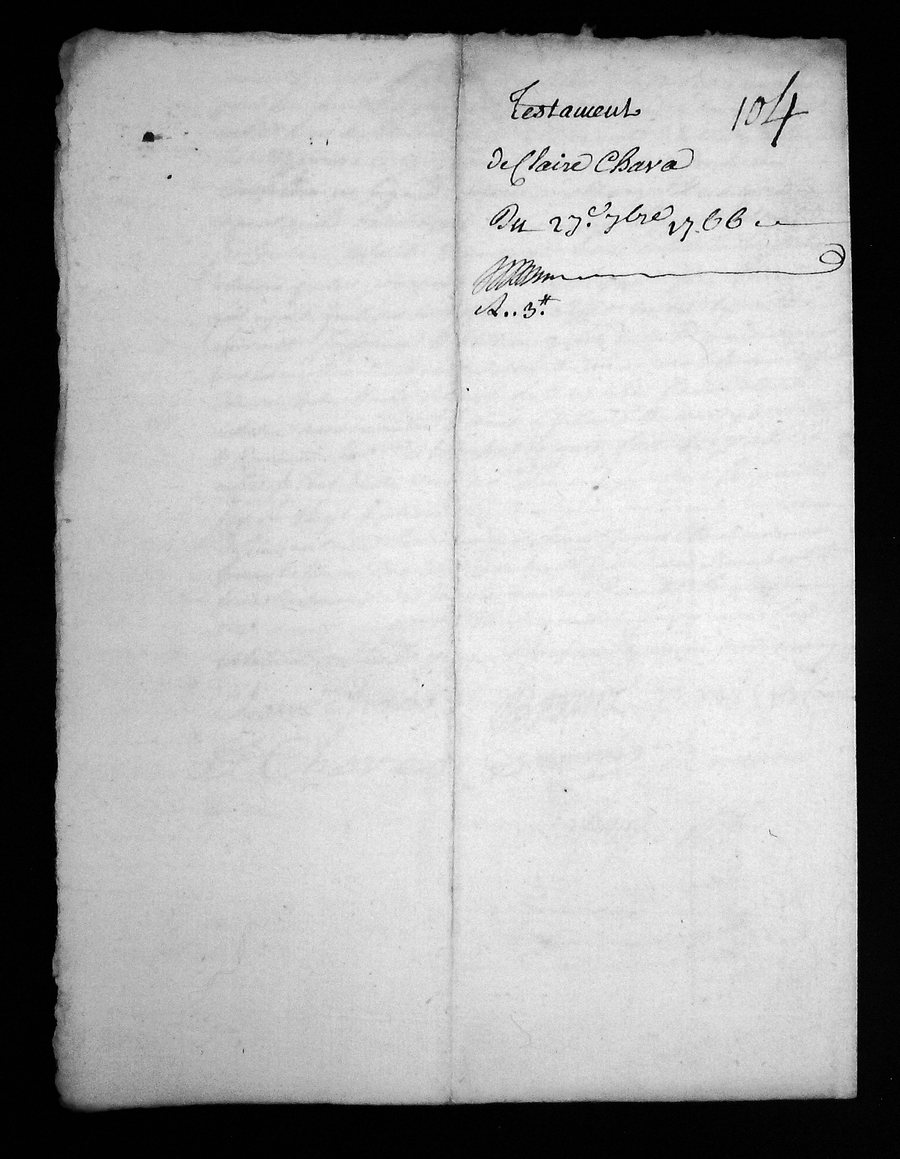 Testament 104
de Claire Chava
Du 27.e 7bre 1766
A.. 3.#